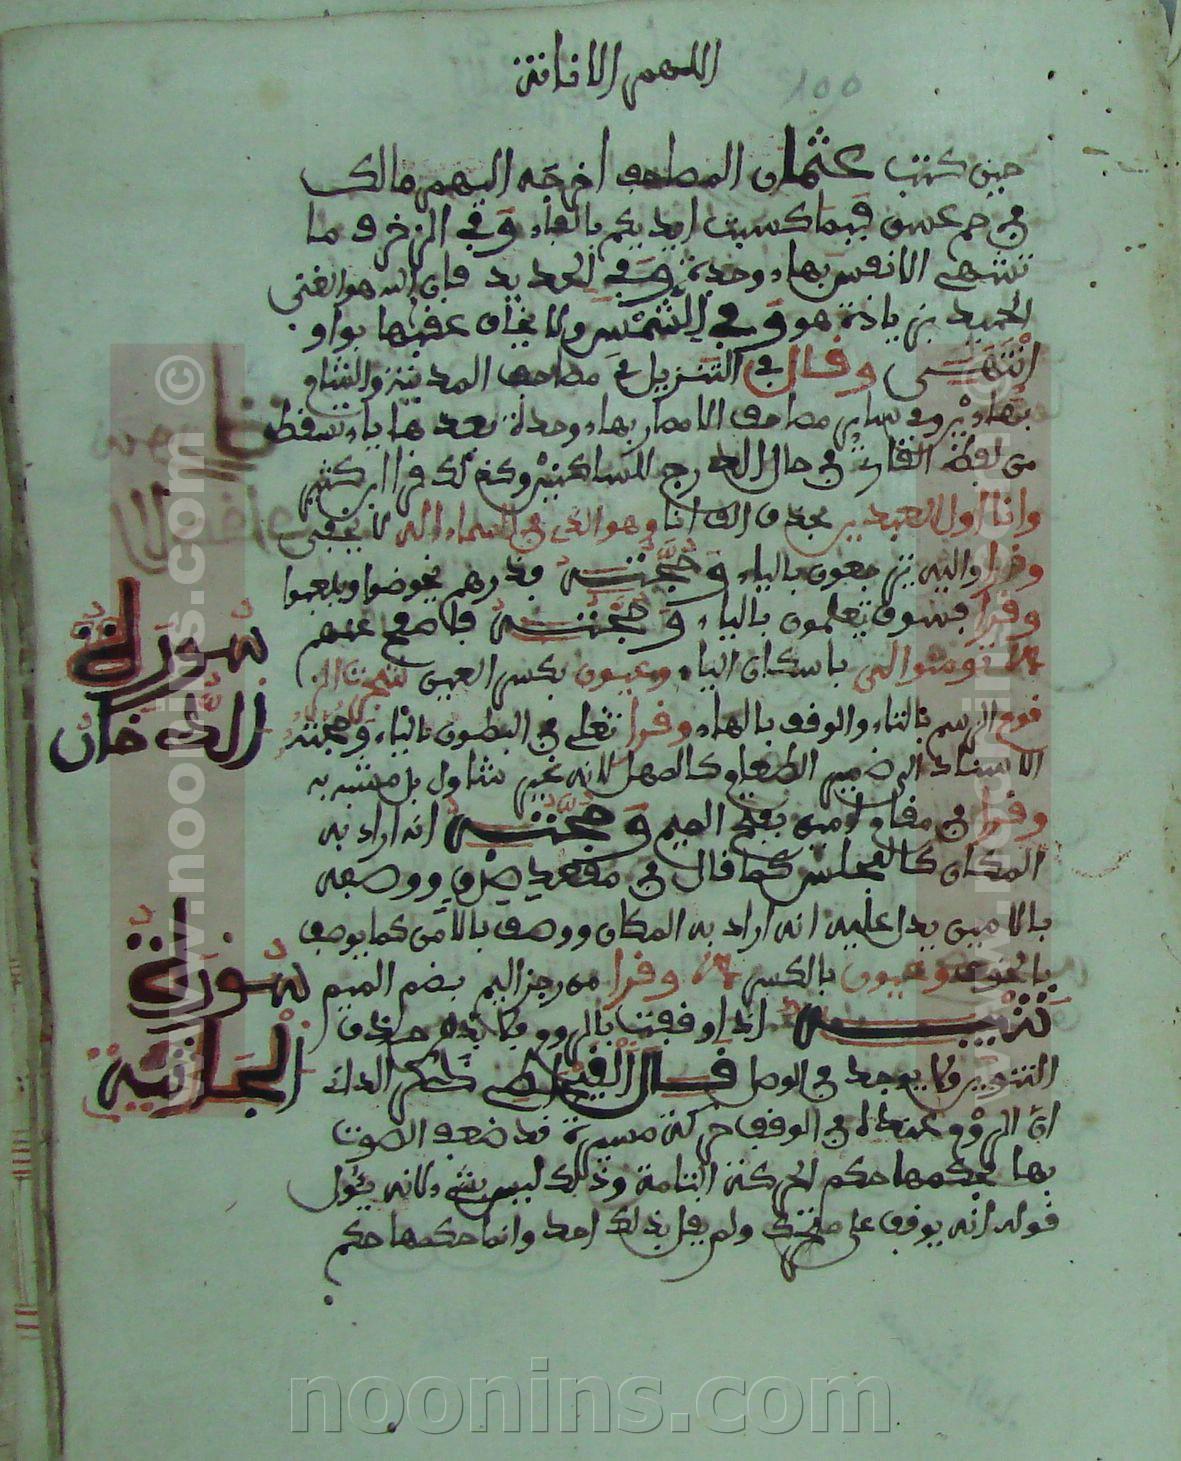 اللهم الاقانة
100
حين كتب عثمان المصاحف اخرجه اليهم مالك
في حم عسق فبما كسبت ايديكم بالفاء وفي الزخرف ما
تشتهي الانفس بهاء وحدة وفي الحديد فان الله هو الغني
الحميد بزيادة هو وفي الشمس ولا يخاف عقبها بواو
انتهى وقال في التنزيل في مصاحف المدينة والشام
بهاءين وفي ساير مصاحف الامصار بهاء وحدة بعدها ياء تسقط
من لفظ القارئ في حال الدرج للساكنين وكذلك قرا ابن كثير
وانا اول العبدين بحذف الف انا وهو الذي في السماء اله لا يخفى
وقرا واليه يرجعون بالياء وحجته فذرهم يخوضوا ويلعبوا
وقرا فسوف يعلمون بالياء وحجته فاصفح عنهم
تومنوا لي باسكان الياء وعيون بكسر العين شجرت الز
قوم الرسم بالتاء والوقف بالهاء وقرا تغلي في البطون بالتاء وحجته
الاسناد الى ضمير الطعام كالمهل لانه غير متناول بل مشبه به
وقرا في مقام امين بفتح الميم وحجته انه اراد به
المكان كالمجلس كما قال في مقعد صدق ووصفه
بالامين يدل عليه انه اراد به المكان ووصف بالامن كما يوصف
بالخوف وعيون بالكسر وقرا من رجز اليم بضم الميم
تنبيه اذا وقفت بالروم فلا بد من حذف
التنوين ولا يوجد في الوصل قال القيجاطي ذكر الدان
ان الروم عنده في الوقف حركة مسيرة قد ضعف الصوت
بها بحكمها حكم الحركة التامة وذلك ليس بشيء لانه يئول
قوله انه يوقف على متحرك ولم يقل بذلك احد وانما حكمها حكم
سورة
الدخان
سورة
الجاثية
www.noonins.com ©
www.noonins.com ©
noonins.com